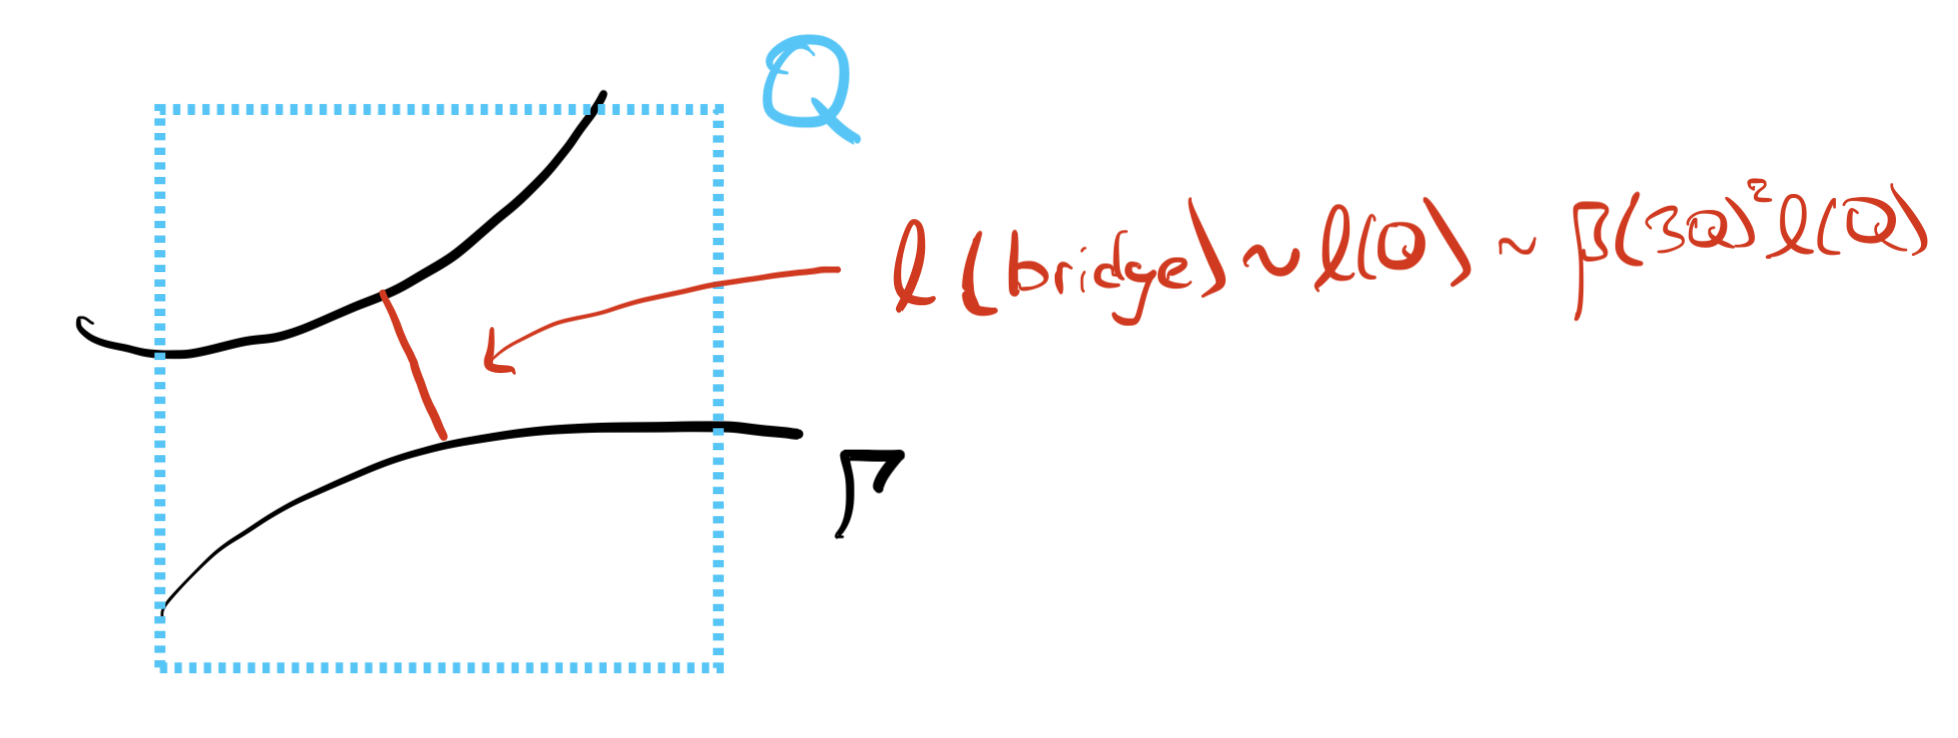 Q
ℓ(bridge) ~ ℓ(Q) ~ β(3Q)²ℓ(Q)
Γ